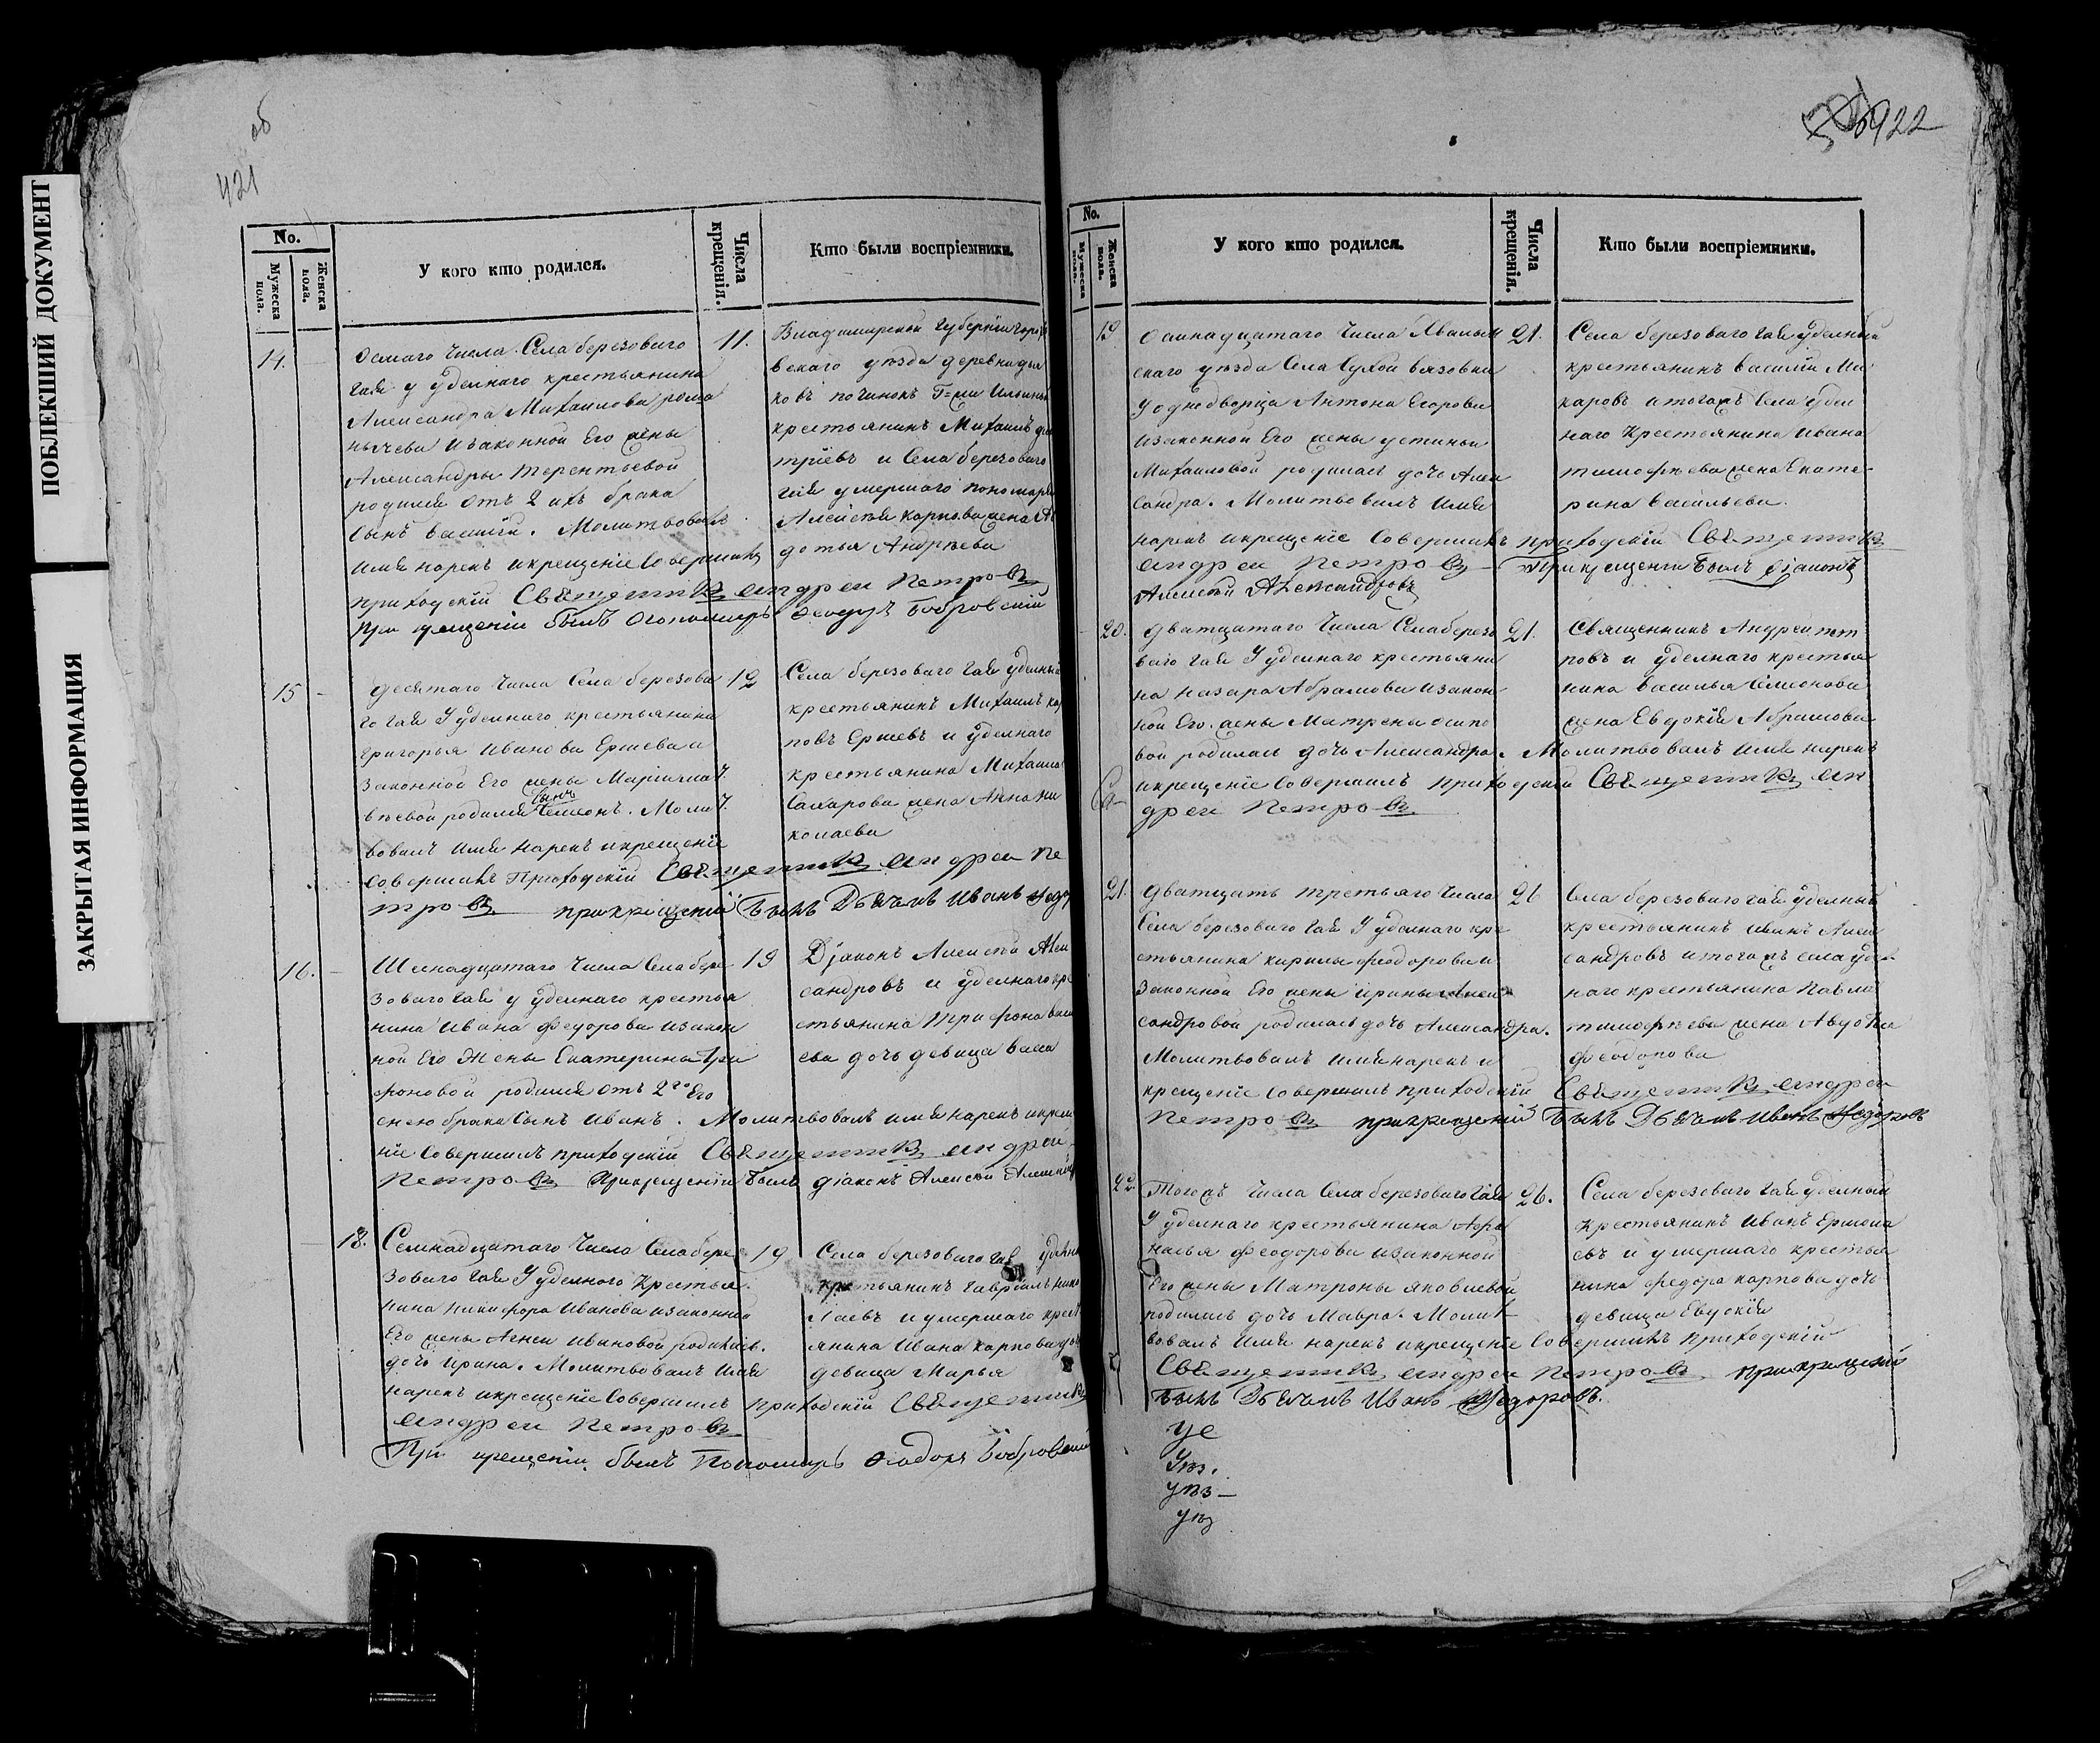 ПОБЛЕКШИЙ ДОКУМЕНТ
ЗАКРЫТАЯ ИНФОРМАЦИЯ
об
421
No.
Мужеска пола.
Женска пола.
У кого кто родился.
Числа крещенія.
Кто были воспріемники.
14.
Осмаго Числа Села березоваго
гая у удѣлнаго крестьянина
Александра Михаилова рома
нычева изаконной Его жены
Александры терентьевой
родился отъ 2 ихъ брака
сынъ василій. Молитвовалъ
имя нарекъ икрещеніе совершилъ
приходскій Священникъ андрей Петровъ
При крещеніи былъ пономарь Ѳеодоръ Бобровскій
11.
Владимирской губерніи горо
вскаго уѣзда деревни дья
ковъ починокъ Г=жи
крестьянинъ Михаилъ
тріевъ и Села березоваго
гая умершаго пономаря
Алексѣя карпова жена Ав
дотья Андрѣева
15
Десятаго Числа Села березова
го гая У удѣлнаго крестьянина
григорья иванова Ершева и
законной Его жены Маріи
вѣевой родился сынъ Семіонъ. Молит
вовалъ имя нарекъ икрещеніе
совершилъ Приходскій Священникъ андрей Пе
тровъ прикрещеній Былъ Дьячекъ Иванъ Ѳедо
12
Села березоваго гая удѣлный
крестьянинъ Михаилъ кар
повъ Ершевъ и удѣлнаго
крестьянина Михаила
Сахарова жена Анна ни
колаева
16.
Шеснадцатаго Числа Села бере
зоваго гая у удѣлнаго крестья
нина ивана Федорова изакон
ной Его Жены Екатерины три
фоновой родился отъ 2го Его
снею брака сынъ Иванъ. Молитвовалъ имя нарекъ икреще
ніе совершилъ приходскій Священникъ андрей
Петровъ Прикрещеніи былъ діаконъ Алексѣй
19
Діаконъ Алексѣй Алек
сандровъ и удѣлнаго кре
стьянина трифона васи
ева дочь девица васса
18.
Семнадцатаго Числа Села бере
зоваго гая У удѣлного Крестья
нина никифора Иванова изаконной
Его жены Агнеи ивановой родилась
дочь ирина. Молитвовалъ имя
нарекъ икрещеніе Совершилъ приходскій Священникъ
андрей Петровъ
При крещеніи былъ Пономарь Ѳеодоръ Бобровскій
19
Села березоваго гая удѣлн
крестьянинъ гавріилъ нико
лаевъ иумершаго крест
янина Ивана карпова дочь
девица Марья
922
No.
Мужеска пола.
Женска пола.
У кого кто родился.
Числа крещенія.
Кто были воспріемники.
19
Однинадцатаго Числа Хвалын
скаго уѣзда Села Сухой вязовки
У однодворца Антона Егорова
изаконной Его жены устиньи
Михаиловой родилась дочь Алек
сандра. Молитвовалъ имя
нарекъ икрещеніе совершилъ приходскій Священникъ
андрей Петровъ При крещеніи Былъ діаконъ
Алексѣй Александровъ
21.
Села березоваго гая удѣлный
крестьянинъ василій Ма
каровъ итогожъ Села удѣл
наго Крестьянина ивана
тимофѣева жена Екате
рина васильева.
20.
Дватцатаго Числа Села березо
ваго гая У удѣлнаго крестьяни
на назара Абрамова изакон
ной Его жены Матрены осипо
вой родилась дочь Александра. Молитвовалъ имя нарекъ
икрещеніе совершилъ приходскій Священникъ ан
дрей Петровъ
21.
Священникъ Андрей пет
ровъ и удѣлнаго крестья
нина василья семионова
жена Евдокія Абрамова
21.
Дватцать третьяго Числа
Села березоваго гая У удѣлнаго кре
стьянина кирилы феодорова и
законной Его жены ирины Алек
сандровой родилась дочь Александра.
Молитвовалъ имя нарекъ и
крещеніе совершилъ приходскій Священникъ андрей
Петровъ прикрещеній Былъ Дьячекъ Иванъ Ѳедоровъ
26
Села березоваго гая удѣлный
крестьянинъ иванъ Алек
сандровъ итогожъ села удѣл
наго крестьянина Павла
тимофѣева жена Авдотья
феодорова
22
Тогожъ Числа Села березоваго гая
У удѣлнаго крестьянина Афа
насья феодорова изаконной
Его жены Матроны яковлевой
родилась дочь Мавра. Молит
вовалъ имя нарекъ икрещеніе Совершилъ приходскій
Священникъ андрей Петровъ прикрещеній
Былъ Дьячекъ Иванъ Ѳедоровъ.
26.
Села березоваго гая удѣлный
крестьянинъ Иванъ Ермола
евъ и умершаго крестья
нина федора карпова дочь
девица Евдокія